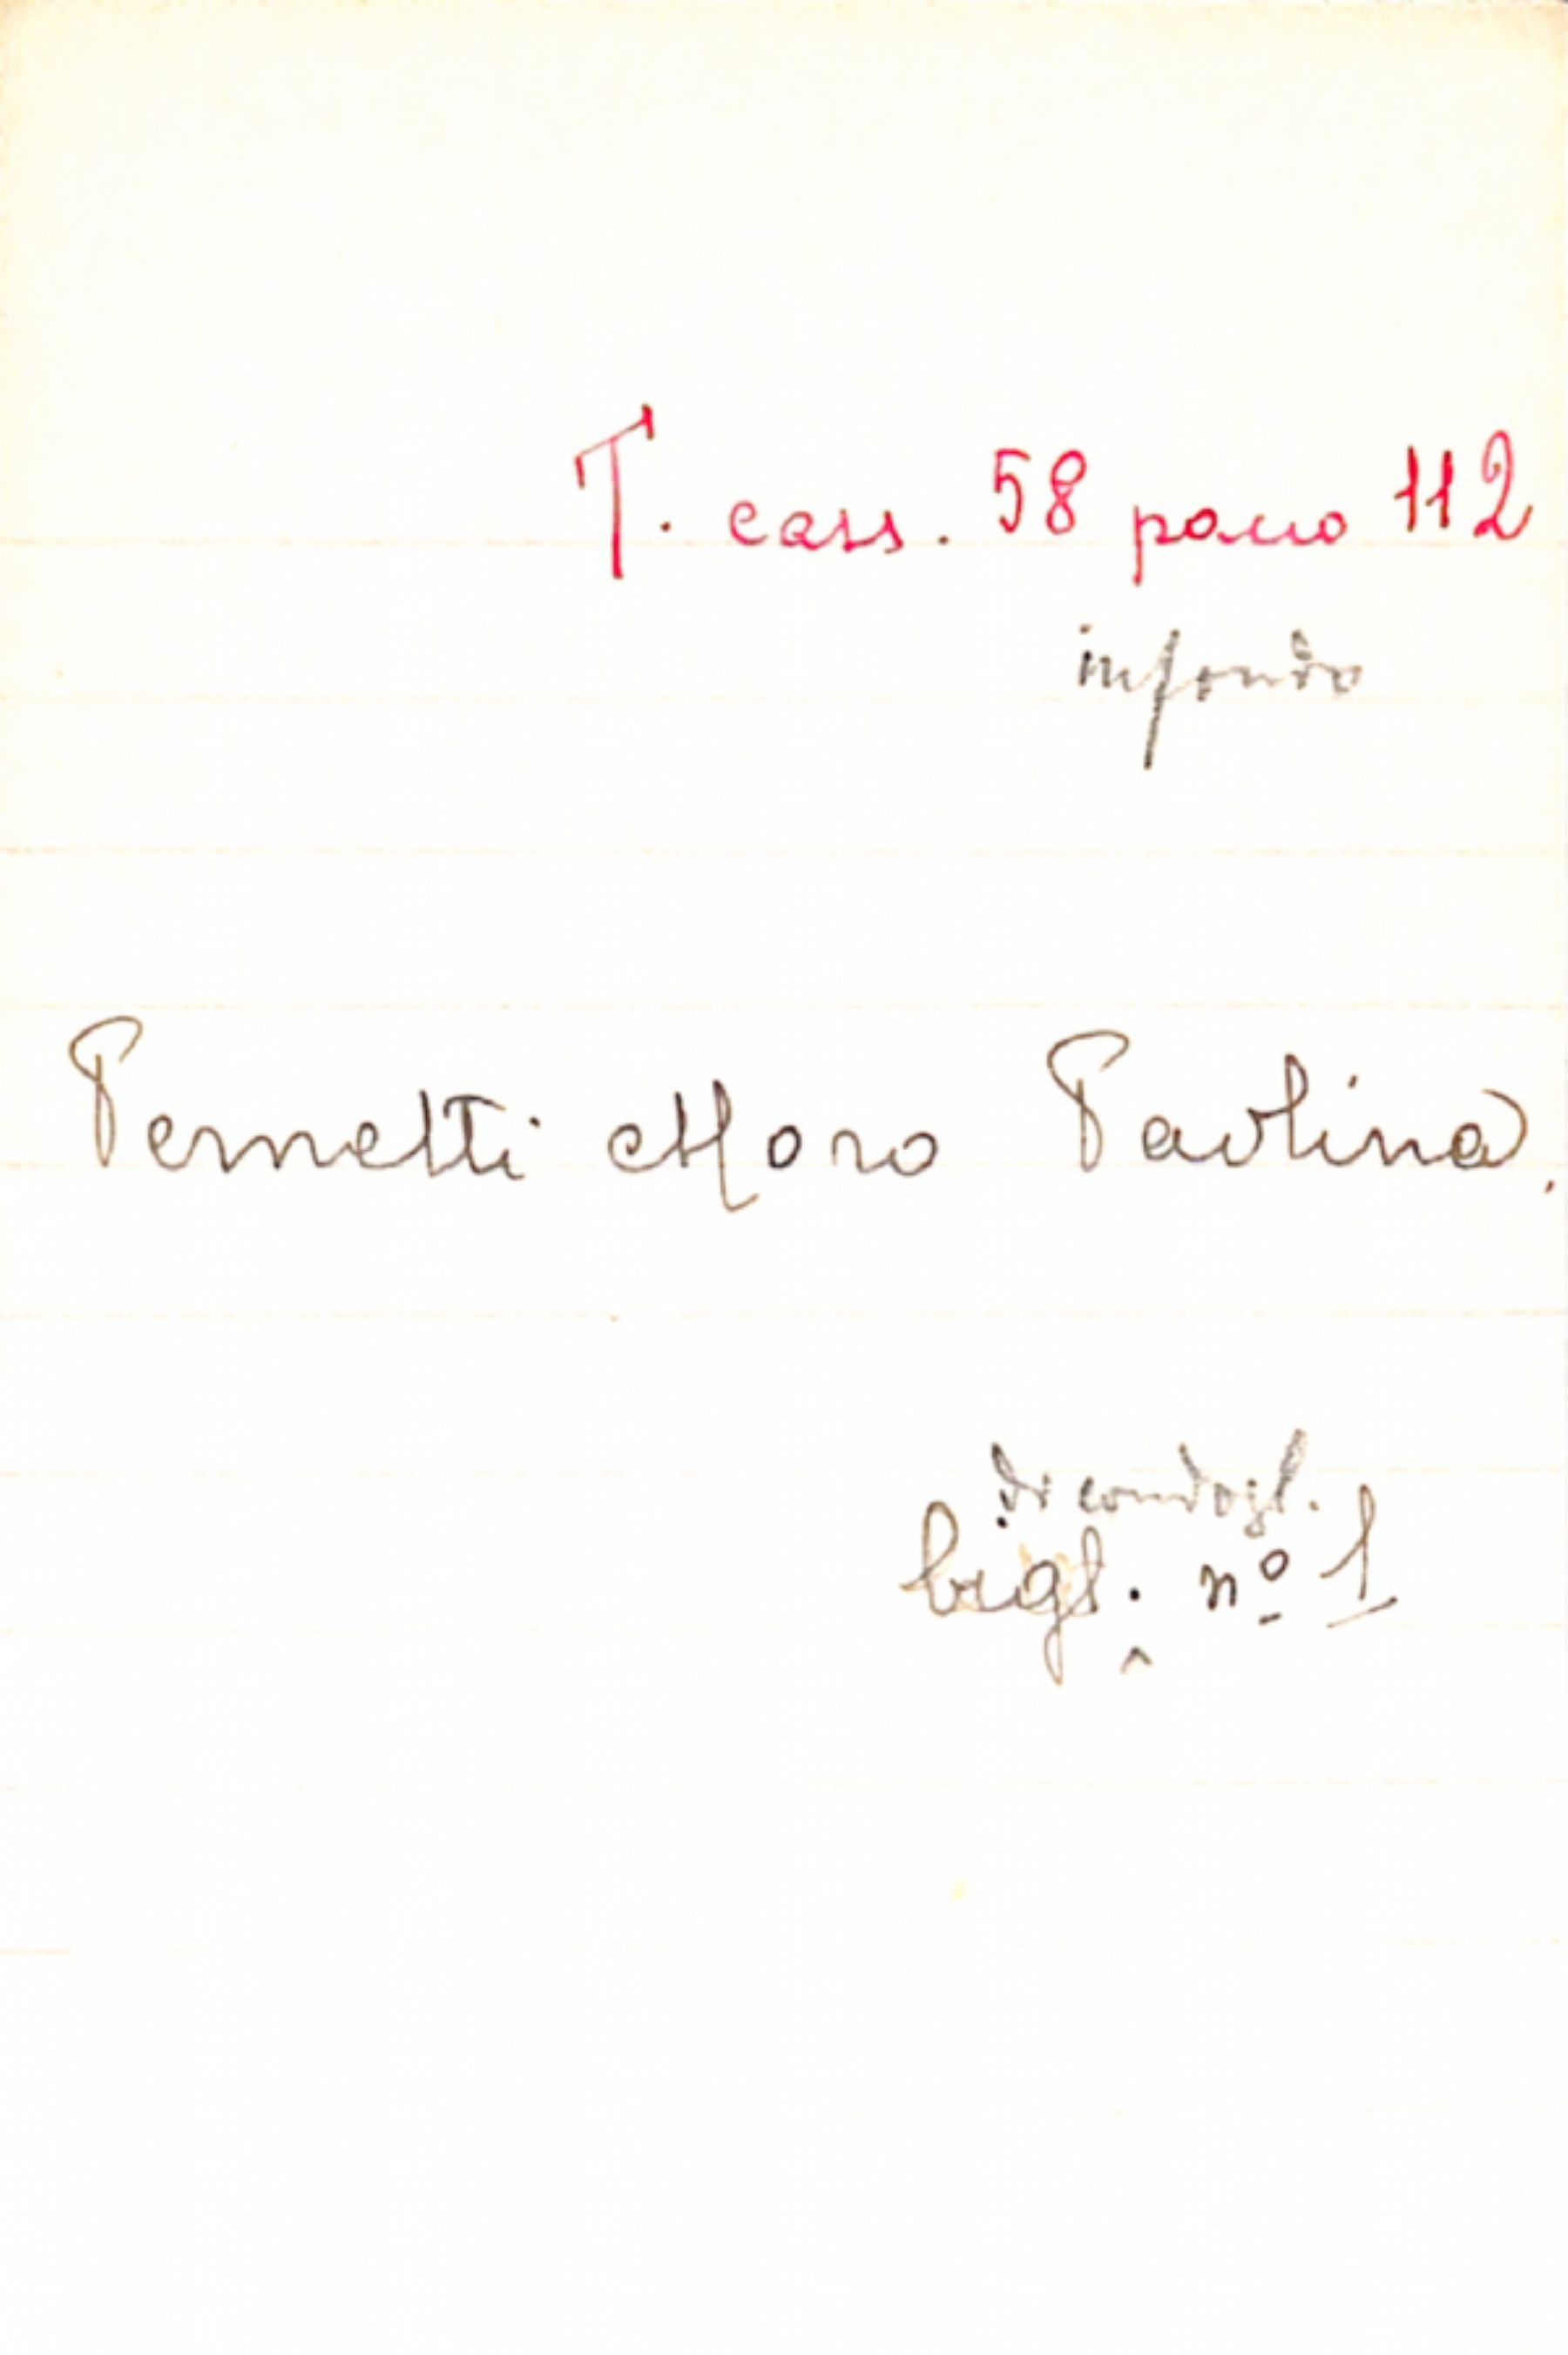 T. cass. 58 pacco 112
in fondo
Pernetti Moro Paolina.
di condogl.
bigl. nº 1